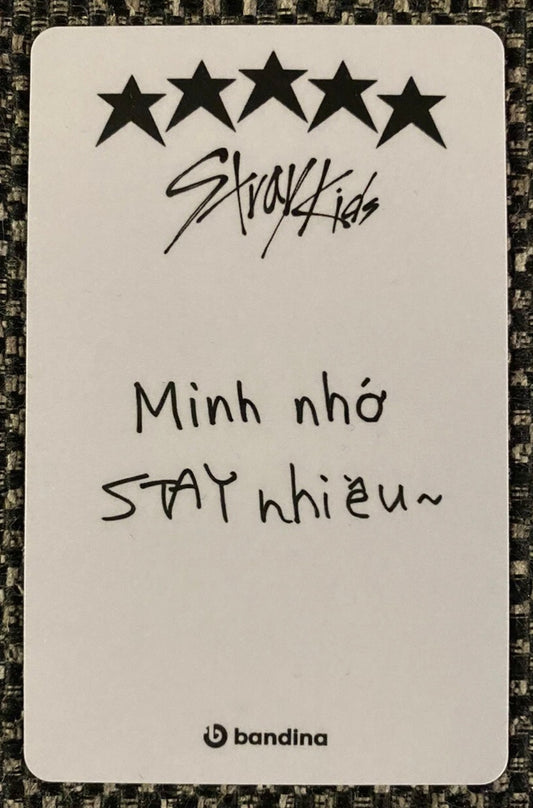 Stray Kids
Minh nhớ
STAY nhiều~
bandina